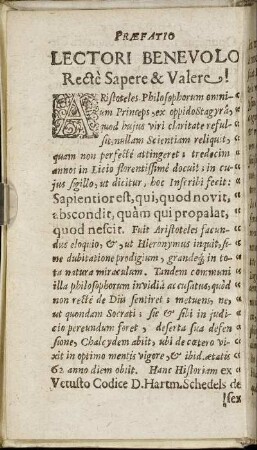 PRÆFATIO
LECTORI BENEVOLO
Rectè Sapere & Valere!
ARistoteles Philosophorum omni-
um Princeps, ex oppido Stagyrâ,
quod hujus viri claritate reful-
sit, nullam Scientiam reliquit,
quam non perfectè attingeret: tredecim
annos in Licio florentissimè docuit: in cu-
jus sigillo, ut dicitur, hoc Inscribi fecit:
Sapientior est, qui, quod novit,
abscondit, quàm qui propalat,
quod nescit. Fuit Aristoteles facun-
dus eloquio, &, ut Hieronymus inquit, si-
ne dubitatione prodigium, grandeq́; in to-
ta natura miraculum. Tandem communi
illa philosophorum invidiâ accusatus, quòd
non rectè de Diis sentiret: metuens, ne,
ut quondam Socrati: sic & sibi in judi-
cio pereundum foret, deserta sua defen-
sione, Chalcydem abiit, ubi de cætero vi-
xit in optimo mentis vigore, & ibid. ætatis
62 anno diem obiit. Hanc Historiam ex
Vetusto Codice D. Hartm. Schedels de-